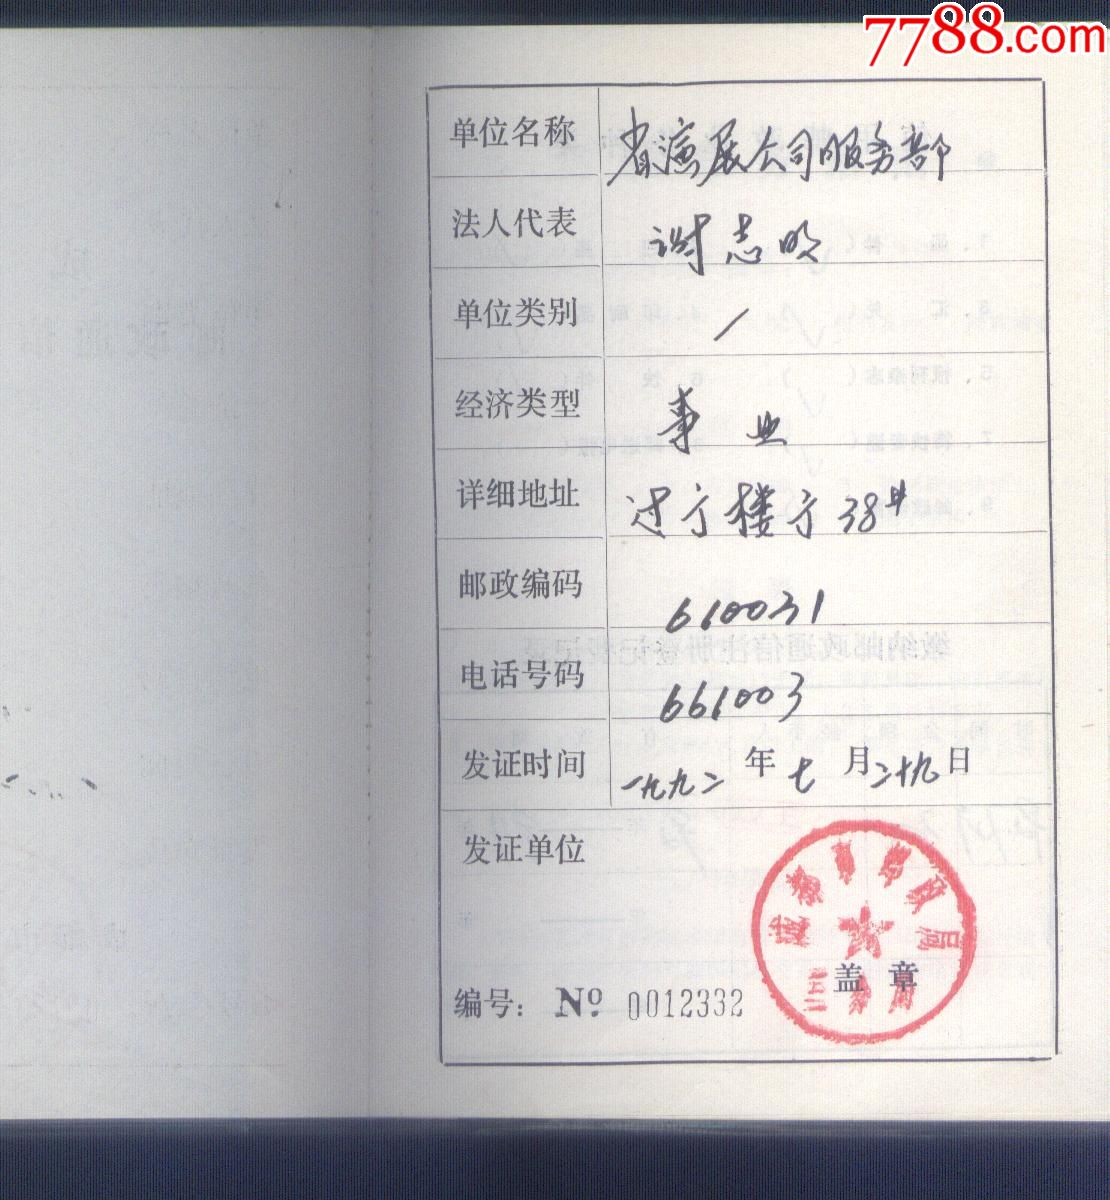 7788.com
单位名称 省渔展公司服务部
法人代表 谢志明
单位类别 /
经济类型 事业
详细地址 过于楼于38#
邮政编码 610031
电话号码 661003
发证时间 一九九二年七月二十九日
发证单位
成都市邮政局
盖章
编号: Nº 0012332